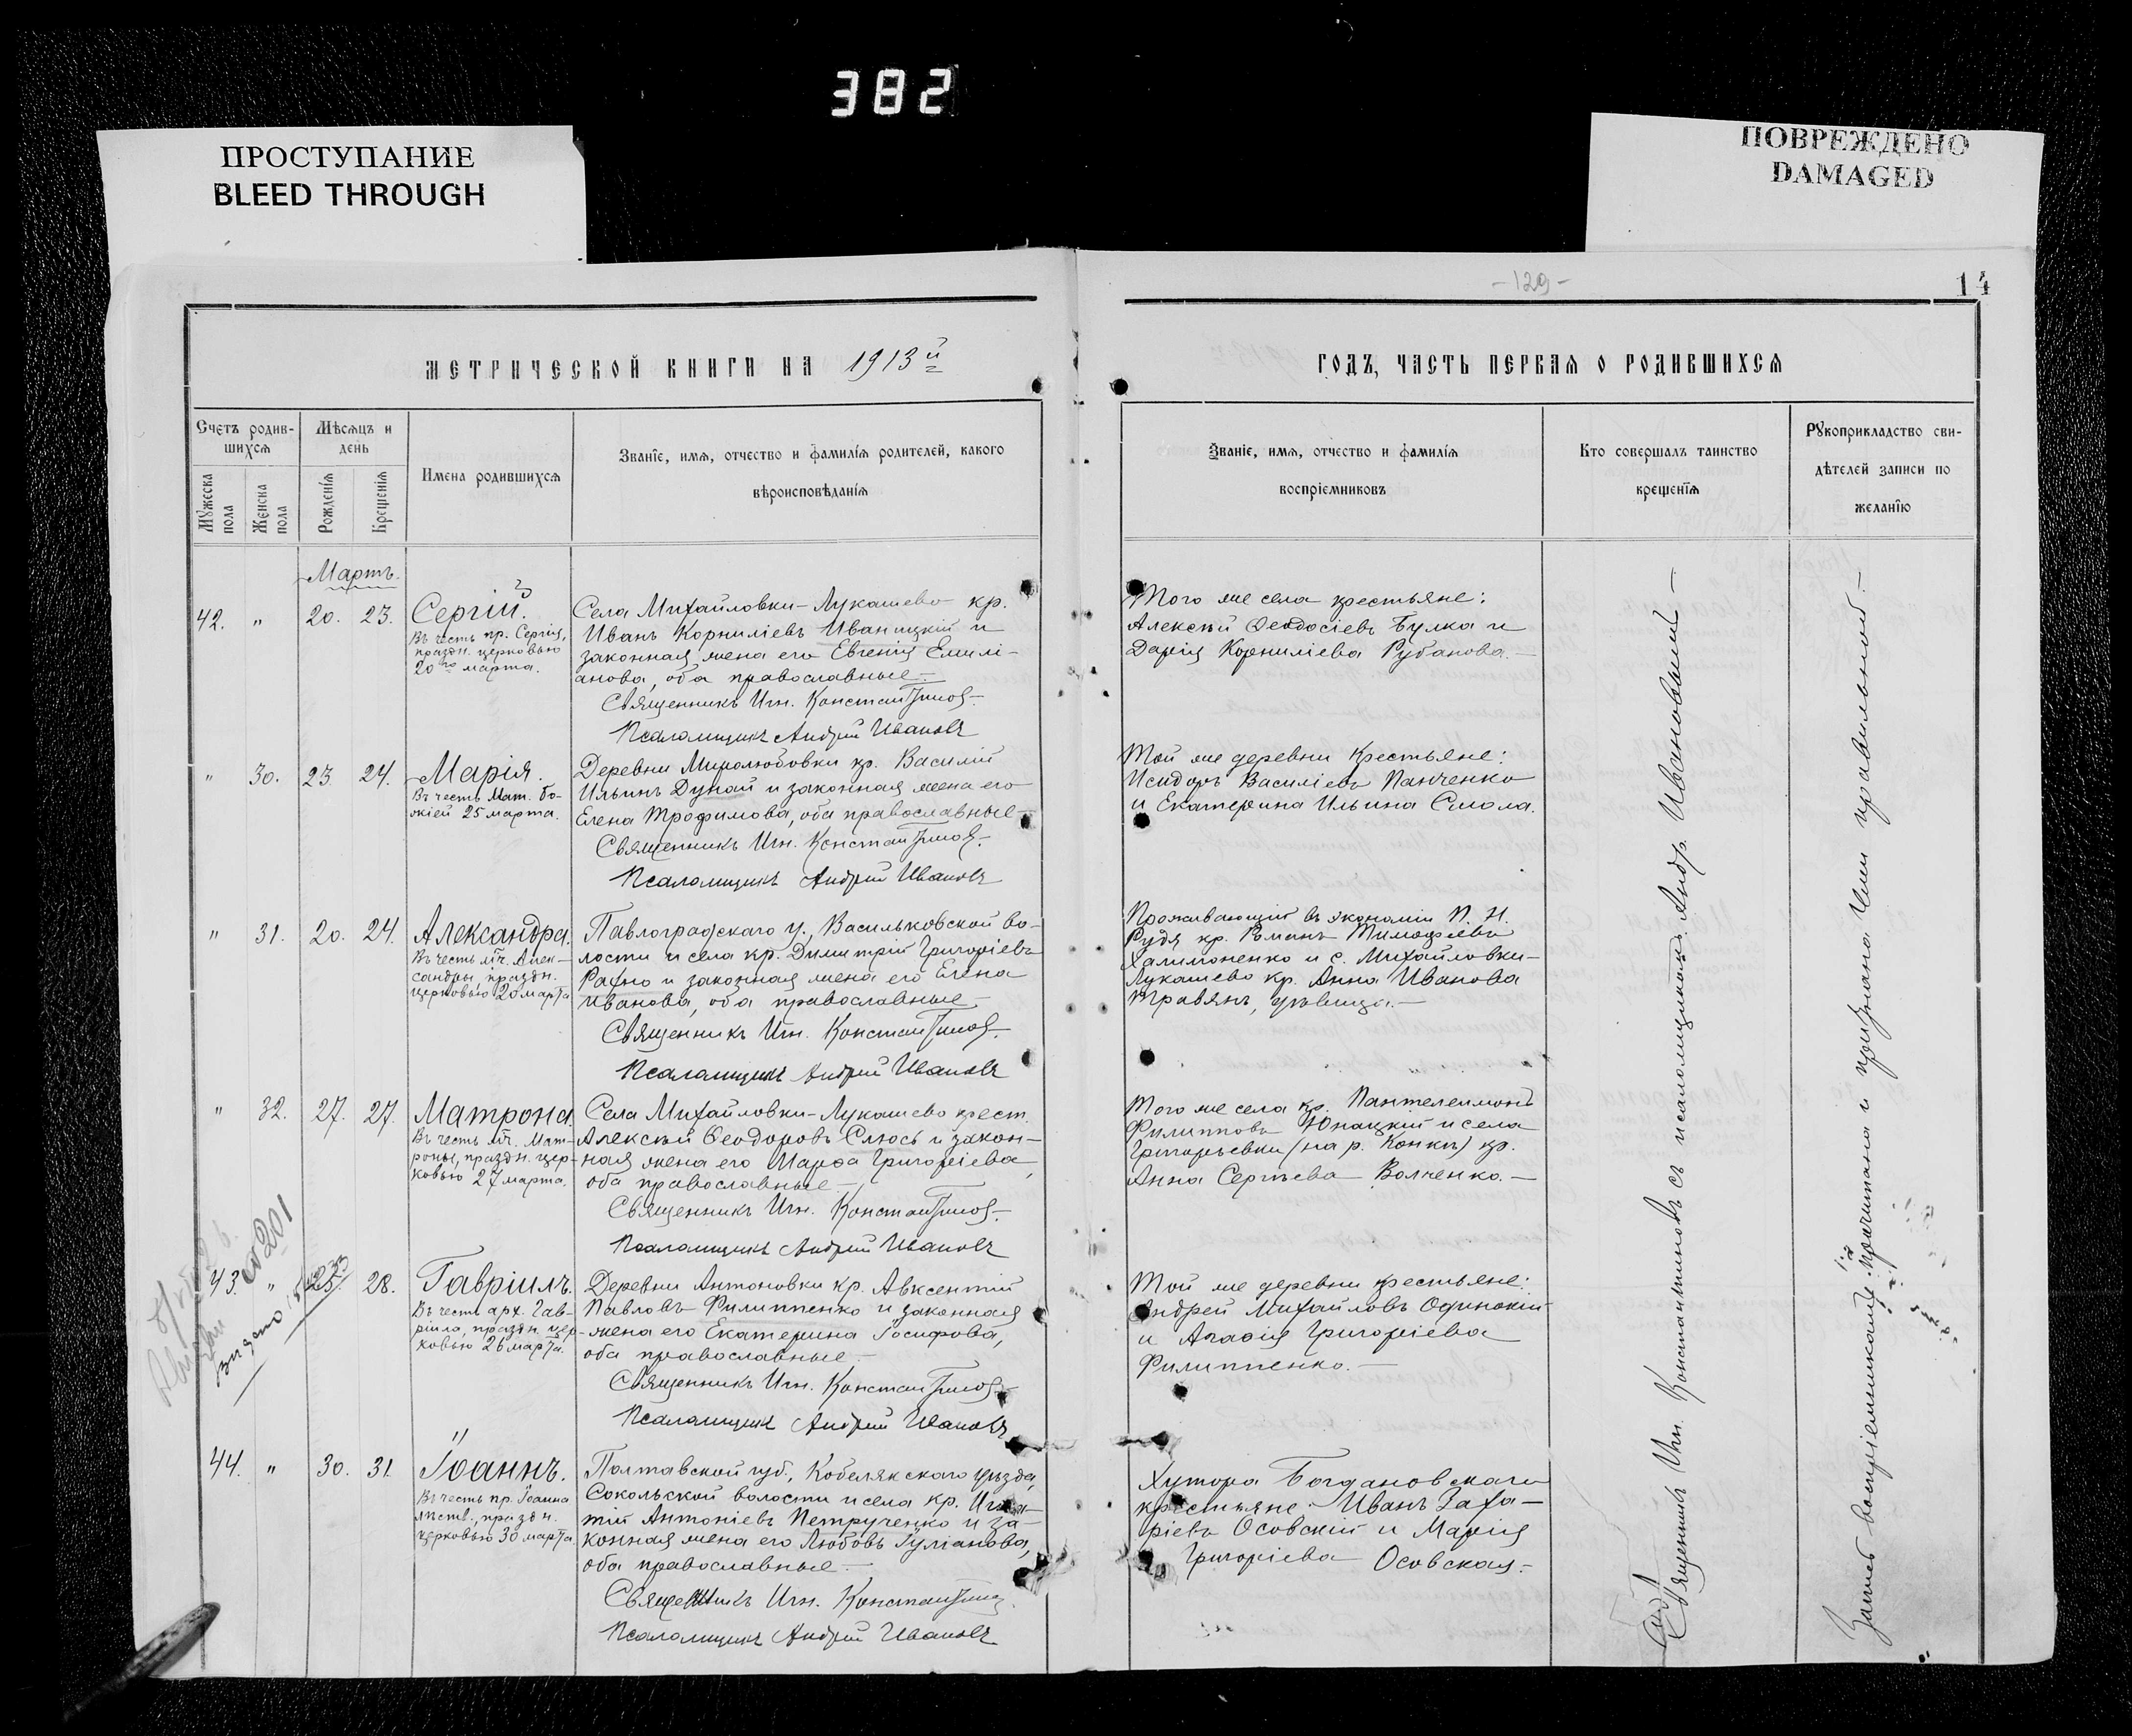 382
ПРОСТУПАНИЕ
BLEED THROUGH
ПОВРЕЖДЕНО
DAMAGED
-129-
14
МЕТРИЧЕСКОЙ КНИГИ НА 1913й
ГОДЪ, ЧАСТЬ ПЕРВАЯ О РОДИВШИХСЯ
Счетъ родив-
шихся
Мужеска
пола
Женска
пола
Мѣсяцъ и
день
Рожденія
Крещенія
Имена родившихся
Званіе, имя, отчество и фамилія родителей, какого
вѣроисповѣданія
Званіе, имя, отчество и фамилія
воспріемниковъ
Кто совершалъ таинство
крещенія
Рукоприкладство сви-
дѣтелей записи по
желанію
Мартъ.
42. " 20. 23.
Сергій.
Въ честь пр. Сергія,
праздн. церковью
20го марта.
Села Михайловки-Лукашево кр.
Иванъ Корниліевъ Иваницкій и
законная жена его Евгенія Емилі-
анова, оба православные.-
Священникъ Игн. Константиновъ.
Псаломщикъ Андрей Ивановъ
Того же села крестьяне:
Алексѣй Ѳеодосіевъ Булка и
Дарія Корниліева Рубанова.-
" 30. 23. 24.
Марія.
Въ честь Мат. Бо-
жіей 25 марта.
Деревни Миролюбовки кр. Василій
Ильинъ Дунай и законная жена его
Елена Трофимова, оба православные-
Священникъ Игн. Константиновъ.
Псаломщикъ Андрей Ивановъ
Той же деревни крестьяне:
Исидоръ Василіевъ Панченко
и Екатерина Ильина Смола.
" 31. 20. 24.
Александра.
Въ честь мч. Алек-
сандры, праздн.
церковью 20 марта
Павлоградскаго у., Васильковской во-
лости и села кр. Димитрій Григоріевъ
Рахно и законная жена его Елена
Иванова, оба православные.-
Священникъ Игн. Константиновъ.
Псаломщикъ Андрей Ивановъ
Проживающій въ экономіи П. Н.
Рудя кр. Романъ Тимофеевъ
Халимоненко и с. Михайловки-
Лукашево кр. Анна Иванова
Травянъ, дѣвица.-
" 32. 27. 27.
Матрона.
Въ честь мч. Мат-
роны, праздн. цер-
ковью 27 марта.
Села Михайловки-Лукашево крест.
Алексѣй Ѳеодоровъ Слюсь и закон-
ная жена его Марѳа Григоріева,
оба православные.-
Священникъ Игн. Константиновъ.
Псаломщикъ Андрей Ивановъ
Того же села кр. Пантелеимонъ
Филипповъ Юнацкій и села
Григорьевки (на р. Конкѣ) кр.
Анна Сергѣева Волченко.-
43. " 25. 28.
Гавріилъ.
Въ честь арх. Гав-
ріила, праздн. цер-
ковью 26 марта.
Деревни Антоновки кр. Авксентій
Павловъ Филиппенко и законная
жена его Екатерина Іосифова,
оба православные.-
Священникъ Игн. Константиновъ.
Псаломщикъ Андрей Ивановъ
Той же деревни крестьяне:
Андрей Михайловъ Одинокій
и Агаѳія Григоріева
Филиппенко.-
44. " 30. 31.
Іоаннъ.
Въ честь пр. Іоанна
лѣств., праздн.
церковью 30 марта
Полтавской губ., Кобелякскаго уѣзда,
Сокольской волости и села кр. Игна-
тій Антоніевъ Петрученко и за-
конная жена его Любовь Іуліанова,
оба православные.-
Священникъ Игн. Константиновъ
Псаломщикъ Андрей Ивановъ
Хутора Богдановскаго
крестьяне: Иванъ Заха-
ріевъ Осовскій и Марія
Григоріева Осовская.-
Священникъ Игн. Константиновъ съ псаломщикомъ Андр. Ивановымъ-
Запись воспріемниками прочитана и признана ими правильной.-